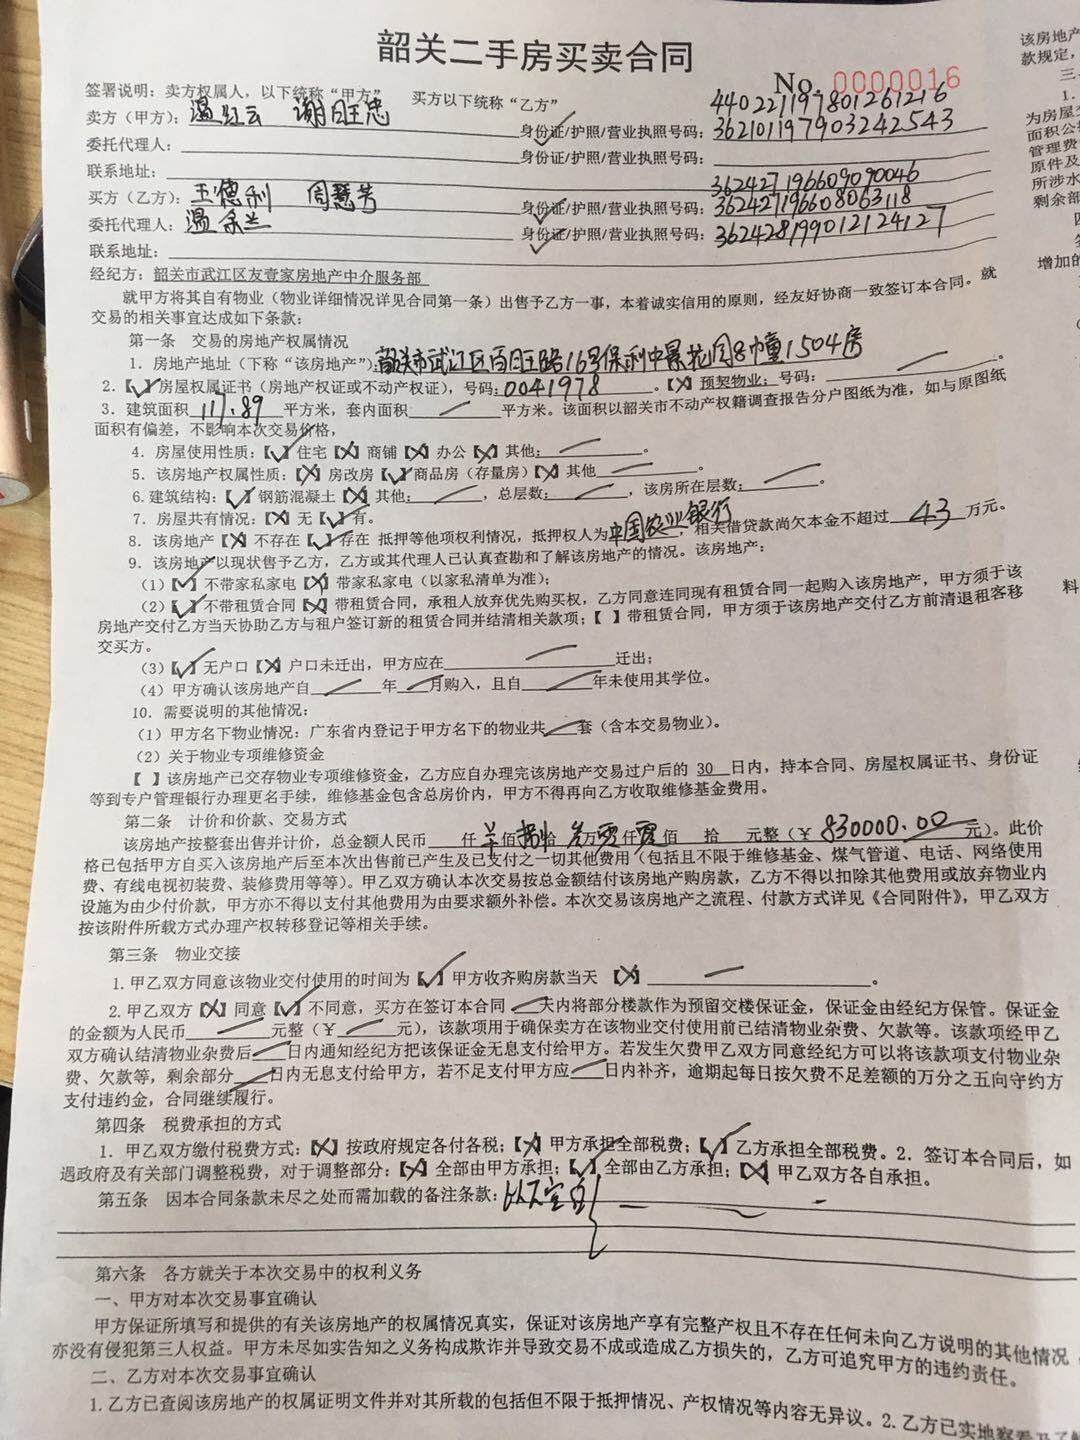 韶关二手房买卖合同
No. 0000016
签署说明：卖方权属人，以下统称“甲方” 买方以下统称“乙方”
440221197801261216
卖方（甲方）：温红云 谢旺忠 身份证/护照/营业执照号码：362101197903242543
委托代理人： 身份证/护照/营业执照号码：
联系地址：
362427196609090046
买方（乙方）：王德利 周慧芳 身份证/护照/营业执照号码：362427196608063118
委托代理人：温 兰 身份证/护照/营业执照号码：362428199012124127
联系地址：
经纪方：韶关市武江区友壹家房地产中介服务部
就甲方将其自有物业（物业详细情况详见合同第一条）出售予乙方一事，本着诚实信用的原则，经友好协商一致签订本合同。就
交易的相关事宜达成如下条款：
第一条 交易的房地产权属情况
1. 房地产地址（下称“该房地产”）：韶关市武江区百旺路16号保利中景花园8幢1504房
2.【√】房屋权属证书（房地产权证或不动产权证），号码：0041978。【X】预契物业：号码：
3. 建筑面积 117.89 平方米，套内面积 / 平方米。该面积以韶关市不动产权籍调查报告分户图纸为准，如与原图纸
面积有偏差，不影响本次交易价格，
4. 房屋使用性质：【√】住宅【X】商铺【X】办公【X】其他： / 。
5. 该房地产权属性质：【X】房改房【√】商品房（存量房）【X】其他 / 。
6. 建筑结构：【√】钢筋混凝土【X】其他： / ，总层数： / ，该房所在层数： / 。
7. 房屋共有情况：【X】无【√】有。
8. 该房地产【X】不存在【√】存在 抵押等他项权利情况，抵押权人为中国农业银行，相关借贷款尚欠本金不超过 43 万元。
9. 该房地产以现状售予乙方，乙方或其代理人已认真查勘和了解该房地产的情况。该房地产：
（1）【√】不带家私家电【X】带家私家电（以家私清单为准）；
（2）【√】不带租赁合同【X】带租赁合同，承租人放弃优先购买权，乙方同意连同现有租赁合同一起购入该房地产，甲方须于该
房地产交付乙方当天协助乙方与租户签订新的租赁合同并结清相关款项；【 】带租赁合同，甲方须于该房地产交付乙方前清退租客移
交买方。
（3）【√】无户口【X】户口未迁出，甲方应在 / 迁出；
（4）甲方确认该房地产自 / 年 / 月购入，且自 / 年未使用其学位。
10. 需要说明的其他情况：
（1）甲方名下物业情况：广东省内登记于甲方名下的物业共 / 套（含本交易物业）。
（2）关于物业专项维修资金
【 】该房地产已交存物业专项维修资金，乙方应自办理完该房地产交易过户后的 30 日内，持本合同、房屋权属证书、身份证
等到专户管理银行办理更名手续，维修基金包含总房价内，甲方不得再向乙方收取维修基金费用。
第二条 计价和价款、交易方式
该房地产按整套出售并计价，总金额人民币 仟 佰捌拾叁万零仟零佰 拾 元整（￥830000.00元）。此价
格已包括甲方自买入该房地产后至本次出售前已产生及已支付之一切其他费用（包括且不限于维修基金、煤气管道、电话、网络使用
费、有线电视初装费、装修费用等等）。甲乙双方确认本次交易按总金额结付该房地产购房款，乙方不得以扣除其他费用或放弃物业内
设施为由少付价款，甲方亦不得以支付其他费用为由要求额外补偿。本次交易该房地产之流程、付款方式详见《合同附件》，甲乙双方
按该附件所载方式办理产权转移登记等相关手续。
第三条 物业交接
1. 甲乙双方同意该物业交付使用的时间为【√】甲方收齐购房款当天【X】 / 。
2. 甲乙双方【X】同意【√】不同意，买方在签订本合同 / 天内将部分楼款作为预留交楼保证金，保证金由经纪方保管。保证金
的金额为人民币 / 元整（￥ / 元），该款项用于确保卖方在该物业交付使用前已结清物业杂费、欠款等。该款项经甲乙
双方确认结清物业杂费后 / 日内通知经纪方把该保证金无息支付给甲方。若发生欠费甲乙双方同意经纪方可以将该款项支付物业杂
费、欠款等，剩余部分 / 日内无息支付给甲方，若不足支付甲方应 / 日内补齐，逾期起每日按欠费不足差额的万分之五向守约方
支付违约金，合同继续履行。
第四条 税费承担的方式
1. 甲乙双方缴付税费方式：【X】按政府规定各付各税；【X】甲方承担全部税费；【√】乙方承担全部税费。2. 签订本合同后，如
遇政府及有关部门调整税费，对于调整部分：【X】全部由甲方承担；【√】全部由乙方承担；【X】甲乙双方各自承担。
第五条 因本合同条款未尽之处而需加载的备注条款：以下空白
第六条 各方就关于本次交易中的权利义务
一、甲方对本次交易事宜确认
甲方保证所填写和提供的有关该房地产的权属情况真实，保证对该房地产享有完整产权且不存在任何未向乙方说明的其他情况
亦没有侵犯第三人权益。甲方未尽如实告知之义务构成欺诈并导致交易不成或造成乙方损失的，乙方可追究甲方的违约责任。
二、乙方对本次交易事宜确认
1. 乙方已查阅该房地产的权属证明文件并对其所载的包括但不限于抵押情况、产权情况等内容无异议。2. 乙方已实地察看及了解
该房地产
款规定，
三
1.
为房屋
面积公
管理费
原件及
所涉水
剩余部
四
增加的
料